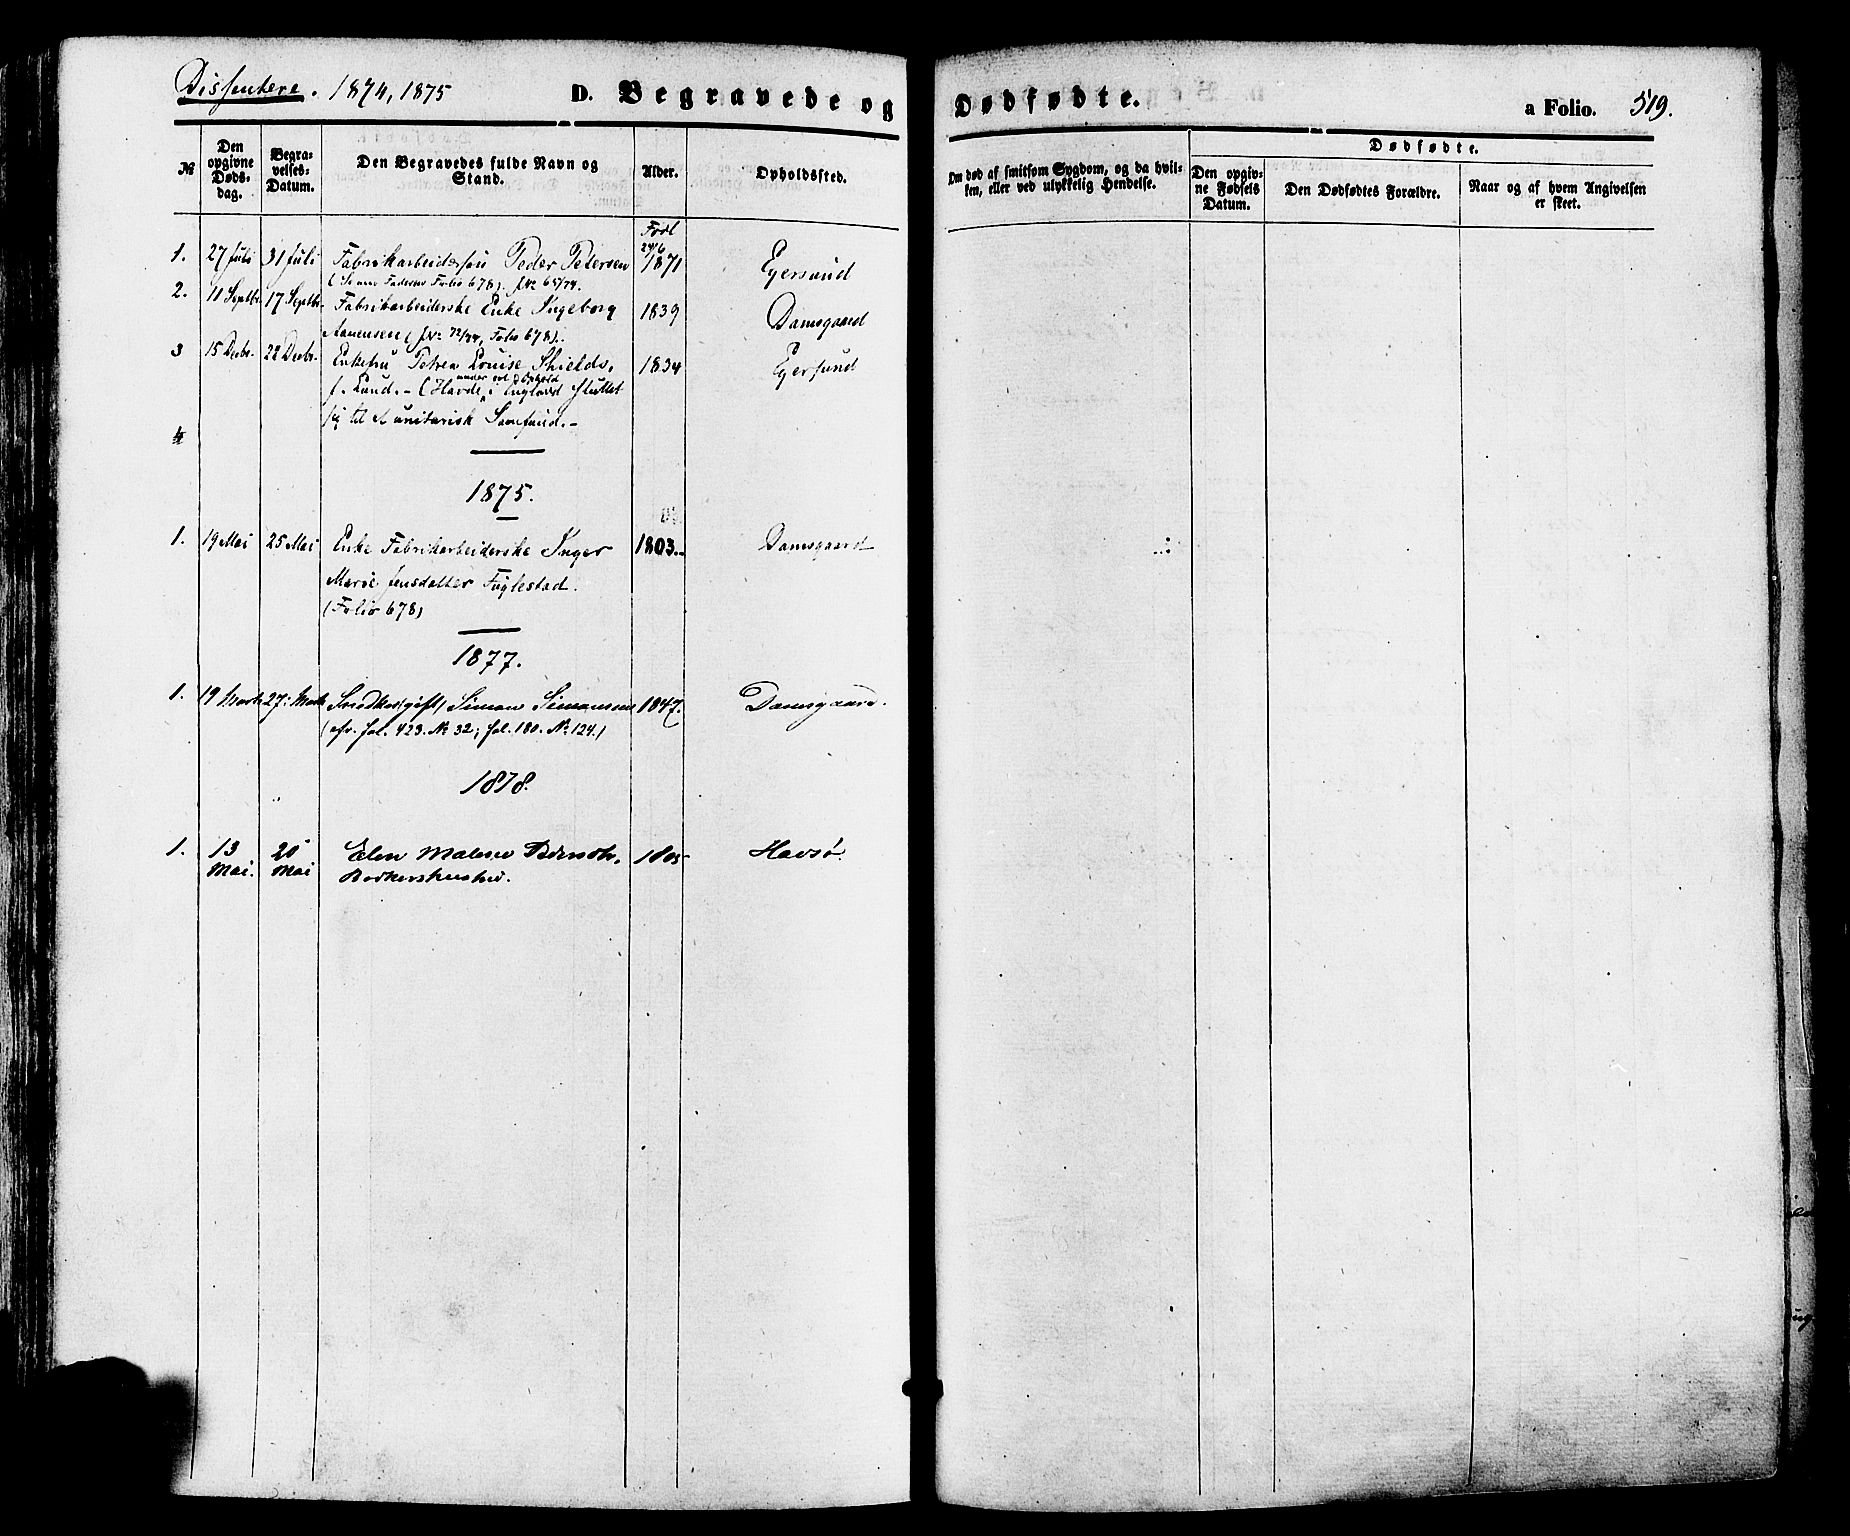 Dissentere. 1874, 1875 D. Begravede og Dødfødte. a Folio. 519.
№
Den opgivne Døds-dag.
Begra-velses-Datum.
Den Begravedes fulde Navn og Stand.
Alder.
Opholdssted.
Om død af smitsom Sygdom, og da hvil-
ken, eller ved ulykkelig Hendelse.
Dødfødte.
Den opgiv-
ne Fødsels
Datum.
Den Dødfødtes Forældre.
Naar og af hvem Angivelsen
er skeet.
Født
24/6
1. 27 Juli 31 Juli Fabrikarbeidersøn Peder Petersen 1871 Egersund
(Se om Faderen Folio 678). f№ 65/74.
2. 11 Septbr. 17 Septbr. Fabrikarbeiderske Enke Ingeborg 1839 Damsgaard
Aanensen (f№ 72/74, Folio 678).
3 15 Decbr. 22 Decbr. Enkefru Petrea Louise Shields, 1834 Egersund
under sit Ophold
f. Lund. - (Havde i England sluttet
sig til et unitarisk Samfund. -
4
1875.
1. 19 Mai 25 Mai Enke Fabrikarbeiderske Inger 1803. Damsgaard
Marie Jensdatter Fuglestad.
(Folio 678)
1877.
1. 19 Marts 27: Marts (gift) Simon Simonsen 1847. Damsgaard.
(cfr. fol. 423. № 32; fol. 180. № 124.)
1878.
1. 13 20 Elen Malene 1805 Havsø.
Mai. Mai